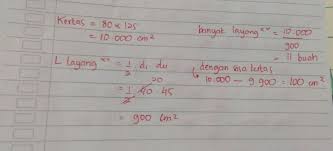 Kertas = 80 x 125
= 10.000 cm²
L layang² = 1/2 . d1 . d2
= 1/2 . 40 . 45
20
= 900 cm²
banyak layang² = 10.000
900
= 11 buah
dengan sisa kertas
10.000 - 9.900 = 100 cm²